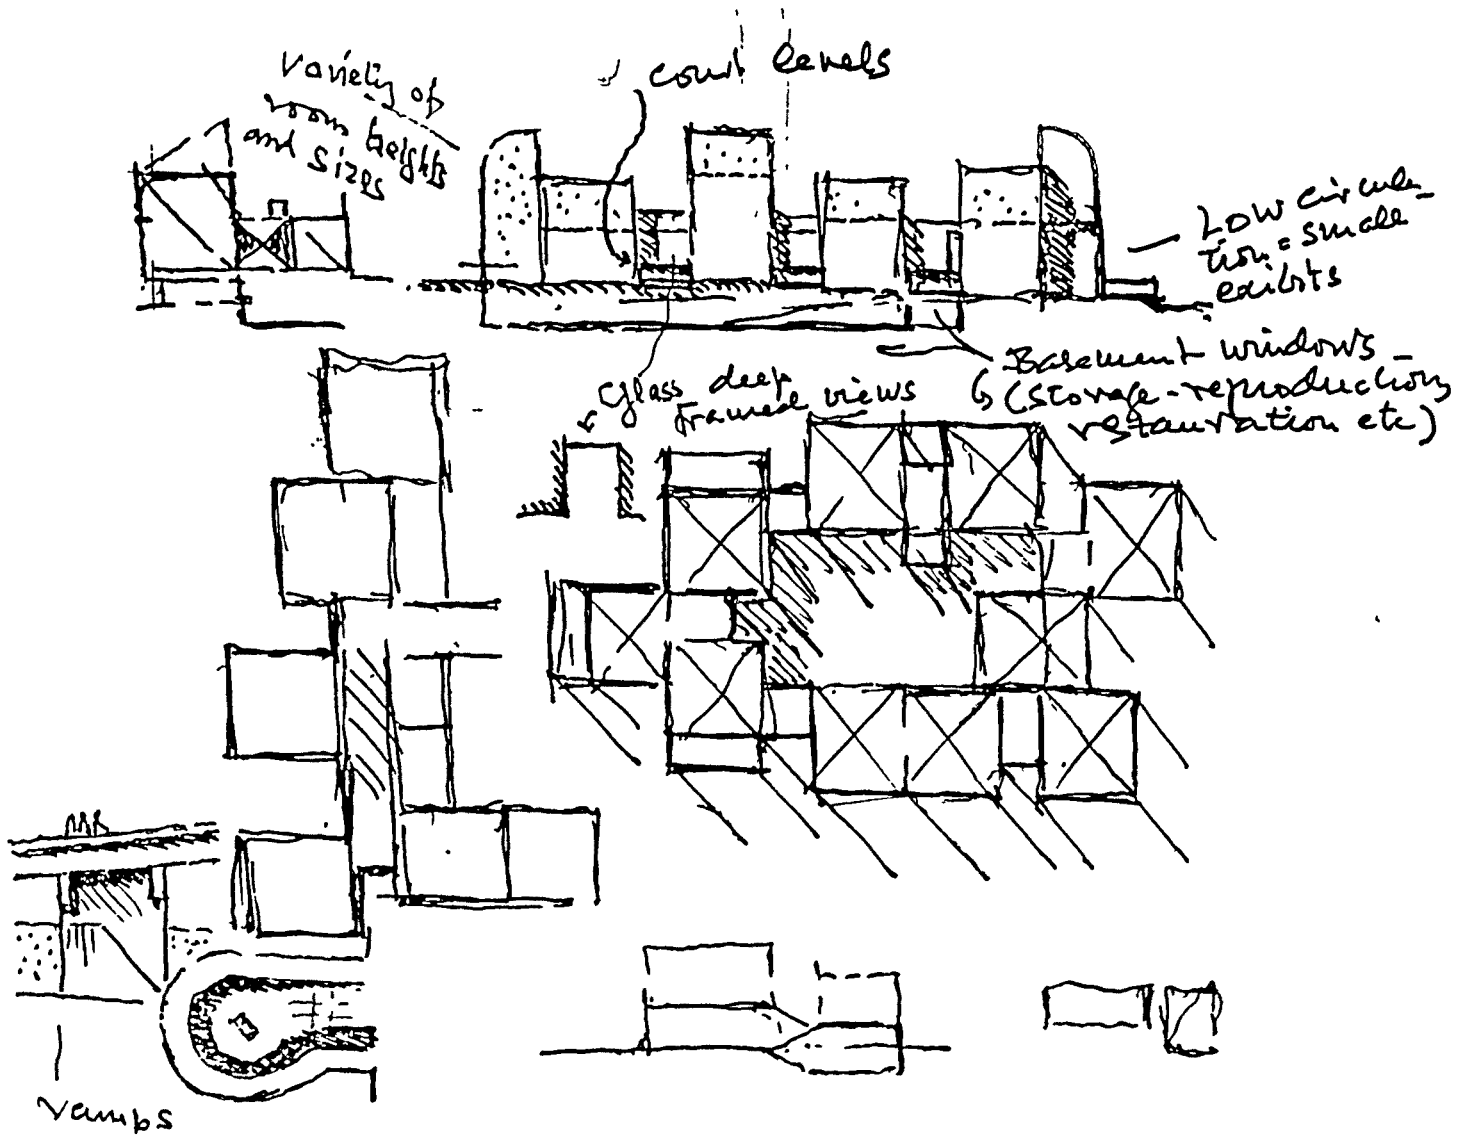 Variety of
room heights
and sizes
court levels
Low circula_
tion = small
exibits
Basement windows _
(storage-reproduction,
restauration etc)
Glass deep
framed views
ramps